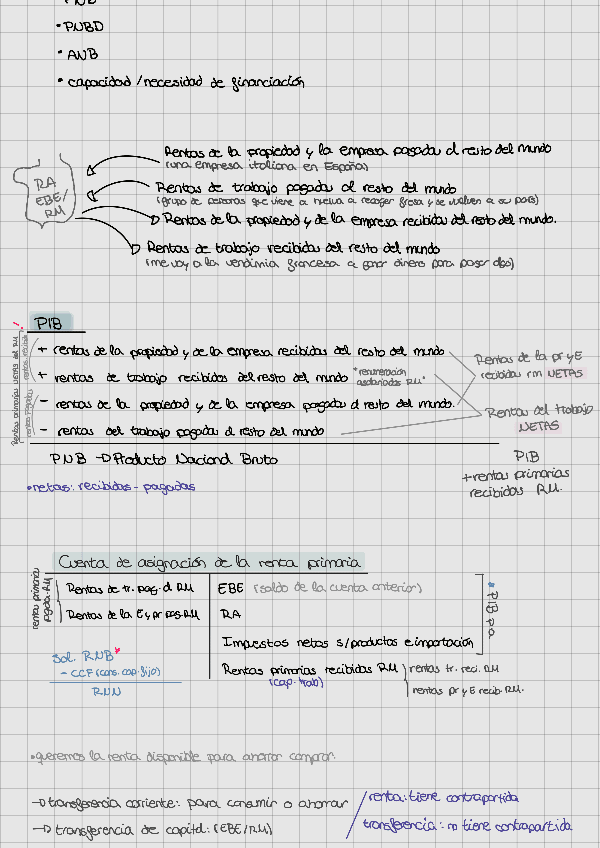 PNB
• PNBD
• ANB
• capacidad / necesidad de financiación
RA
EBE/
RM
Rentas de la propiedad y la empresa pagada al resto del mundo
(una empresa italiana en España)
Rentas de trabajo pagada al resto del mundo
(grupo de personas que viene a Huelva a recoger fresa y se vuelven a su país)
Rentas de la propiedad y de la empresa recibida del resto del mundo.
Rentas de trabajo recibidas del resto del mundo
(me voy a la vendimia francesa a ganar dinero para pagar algo)
PIB
+ rentas de la propiedad y de la empresa recibidas del resto del mundo
+ rentas de trabajo recibidas del resto del mundo "remuneración
asalariados RM"
- rentas de la propiedad y de la empresa pagada al resto del mundo.
- rentas del trabajo pagada al resto del mundo
Rentas primarias netas del RM
Rentas de la pr y E
recibidas rm NETAS
Rentas del trabajo
NETAS
PNB → Producto Nacional Bruto
• netas: recibidas - pagadas
PIB
+ rentas primarias
recibidas RM.
Cuenta de asignación de la renta primaria
rentas primarias
pagada RM
Rentas de tr. pag. al RM
Rentas de la E y pr pag. RM
EBE (saldo de la cuenta anterior)
RA
Impuestos netos s/productos e importación
* PIB p.a
Sal. RNB *
- CCF (cons. cap. fijo)
RNN
Rentas primarias recibidas RM
(cap. trab)
rentas tr. reci. RM
rentas pr y E recib. RM.
• queremos la renta disponible para ahorrar comprar.
→ transferencia corriente: para consumir o ahorrar
→ transferencia de capital: (EBE/RM)
renta: tiene contrapartida
transferencia: no tiene contrapartida